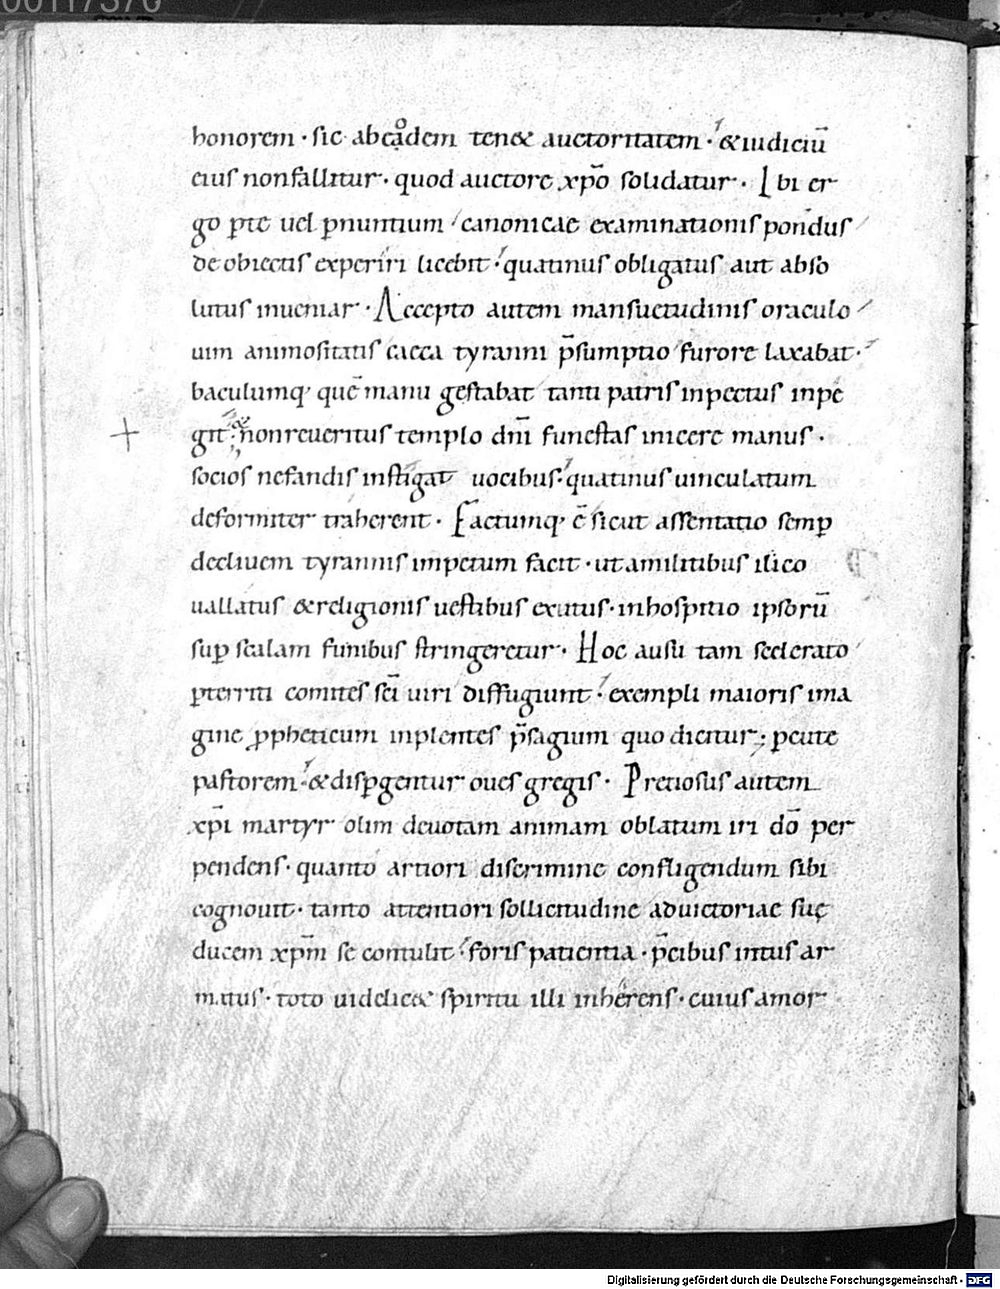 00117370
honorem · sic ab eądem tenet auctoritatem · & iudiciū
eius non fallitur · quod auctore xp̄o solidatur · Ibi er-
go p̱te uel p̱ nuntium canonicae examinationis pondus
de obiectis experiri licebit · quatinus obligatus aut abso
lutus inueniar · Accepto autem mansuetudinis oraculo
uim animositatis caeca tyranni p̄sumptio furore laxabat ·
baculumq; quē manu gestabat tanti patris in pectus inpe
git · & non reueritus templo dn̄i funestas inicere manus ·
socios nefandis instigat uocibus · quatinus uinculatum
deformiter traherent · Factumq; ē sicut assentatio semp̱
decliuem tyrannis impetum facit · ut a militibus ilico
uallatus & religionis uestibus exutus · in hospitio ipsorū
sup̱ scalam funibus stringeretur · Hoc ausu tam scelerato
p̱territi comites sc̄i uiri diffugiunt · exempli maioris ima
gine ꝓpheticum inplentes p̄sagium quo dicitur ; p̱cute
pastorem · & disp̱gentur oues gregis · Pretiosus autem
xp̄i martyr olim deuotam animam oblatum iri dō per
pendens · quanto artiori discrimine confligendum sibi
cognouit · tanto attentiori sollicitudine ad uictoriae suę
ducem xp̄m se contulit · foris patientia · p̄cibus intus ar
matus · toto uidelicet spiritu illi inhęrens · cuius amor
Digitalisierung gefördert durch die Deutsche Forschungsgemeinschaft - DFG